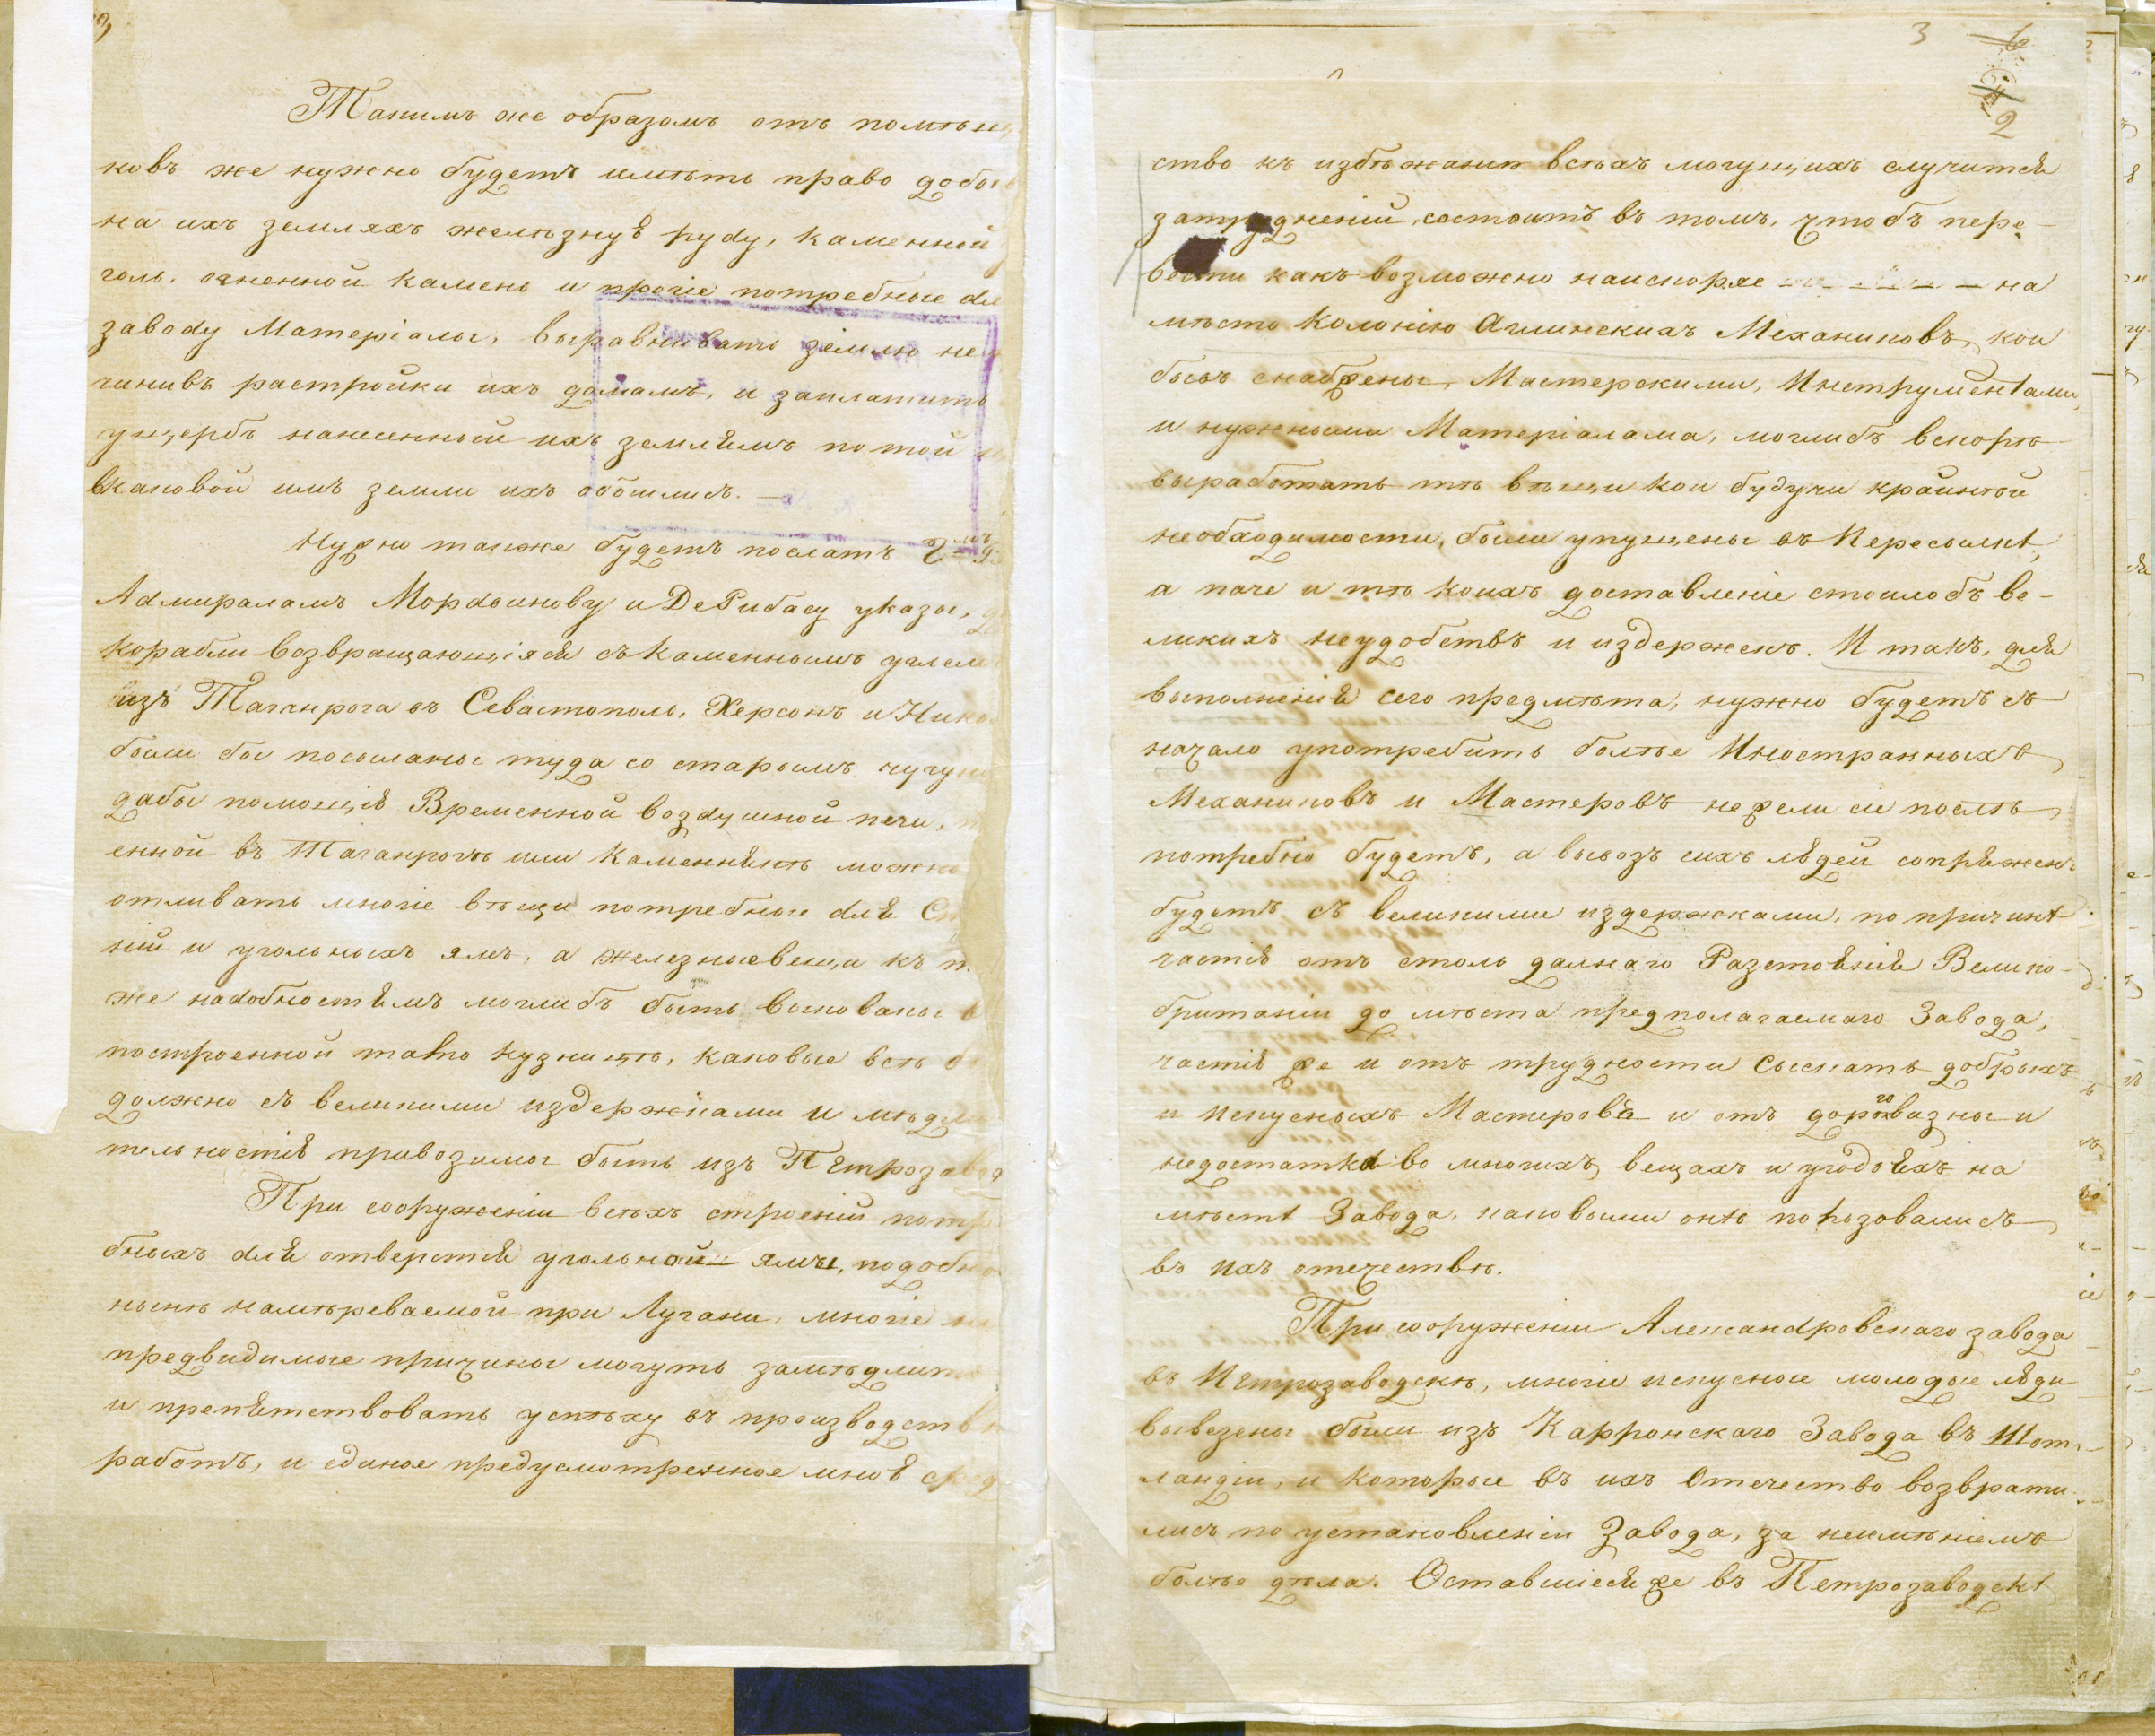 Такимъ же образомъ отъ помѣщи
ковъ же нужно будетъ имѣть право добы
на ихъ земляхъ желѣзную руду, каменной
голь, огненной камень и прочіе потребные для
заводу Матеріалы, выравнивать землю не
чинивъ растройки ихъ домамъ, и заплатить
ущербъ нанесенный ихъ землямъ по той
вкаковой имъ земли ихъ обошлись. —
Нужно также будетъ послать
Адмираламъ Мордвинову и ДеРибасу указы,
корабли возвращающіяся съ каменнымъ углем
изъ Таганрога въ Севастополь, Херсонъ и Нико
были бы посыланы туда со старымъ чугу
дабы помощію Временной воздушной печи,
енной въ Таганрогѣ или Каменнянѣ можно
отливать многіе вѣщи потребные для
ній и угольныхъ ямъ, а железныевещи къ
же надобностямъ моглибъ быть выкованы
построенной тамо кузницѣ, каковые всѣ
должно съ великими издержками и мѣдли
тельностію привозимы быть изъ Петрозавод
При сооруженіи всѣхъ строеній потр
бныхъ для отверстія угольной ямы, подобно
нынѣ намѣреваемой при Лугани, многіе
предвидимые причины могутъ замѣдлить
и препятствовать успѣху въ производств
работъ, и единое предусмотренное мною сред
3
2
ство къ избѣжанію всѣхъ могущихъ случится
затрудненій, состоитъ въ томъ, чтобъ пере-
вести какъ возможно наискоряе — на
мѣсто Колонію Аглинскихъ Механиковъ, кои
бывъ снабжены, Мастерскими, Инструментами,
и нужными Матеріалами, моглибъ вскорѣ
выработать тѣ вѣщи кои будучи крайнѣй
необходимости, были упущены въ Пересылкѣ,
а паче и тѣ коихъ доставленіе стоилобъ ве-
ликихъ неудобствъ и издержекъ. И такъ, для
выполненія сего предмѣта, нужно будетъ съ
начало употребить болѣе Иностранныхъ
Механиковъ и Мастеровъ нежели послѣ
потребно будетъ, а вывозъ сихъ людей сопряженъ
будетъ съ великими издержками, по причинѣ
частію отъ столь далнаго Разстоянія Велико-
британіи до мѣста предполагаемаго Завода,
частію же и отъ трудности Сыскать добрыхъ
и искусныхъ Мастеровъ и отъ дороговизны и
недостатка во многихъ вещахъ и угодіяхъ на
мѣстѣ Завода, каковыми онѣ ползовались
въ ихъ отечествѣ.
При сооруженіи Александровскаго завода
въ Петрозаводскѣ, многіе искусные молодые люди
вывезены были изъ Карронскаго Завода въ Шот-
ландіи, и которые въ ихъ Отечество возврати-
лись по установленіи Завода, за неимѣніемъ
болѣе дѣла. Оставшіеся же въ Петрозаводскѣ